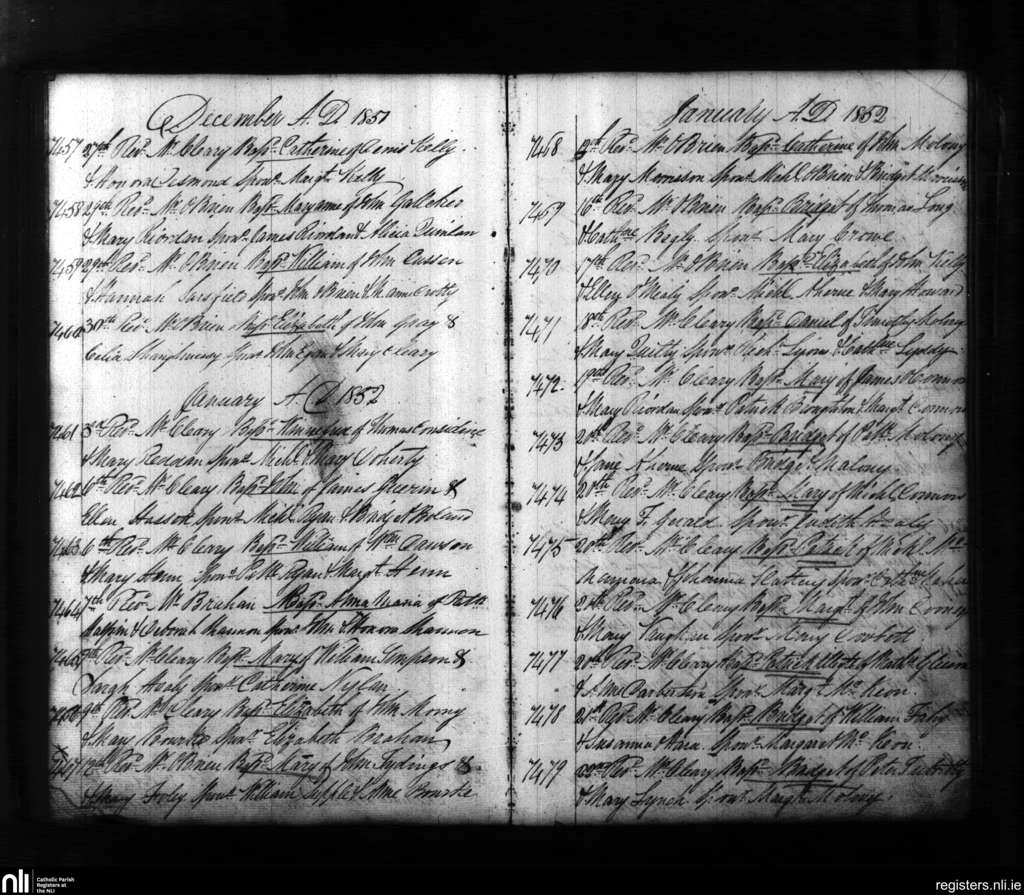 December A.D 1851
7457 27th Revd. Mr. Cleary Bapt. Catherine of Denis Kelly
& Honora Desmond Spons. Margt. Kelly
7458 29th Revd. Mr. OBrien Bapt. Maryanne of John
& Mary Riordan Spons. James Riordan & Alicia Quinlan
7459 29th Revd. Mr. OBrien Bapt. William of John Cussen
& Hannah Sarsfield Spons. John OBrien &
7460 30th Revd. Mr. OBrien Bapt. Elizabeth of John Gray &
Celia Shaughnessy Spons. John Egan & Mary Cleary
January A.D 1852
7461 Revd. Mr. Cleary Bapt. of Thomas Considine
& Mary Reddan Spons. Michl. & Mary Doherty
7462 6th Revd. Mr. Cleary Bapt. John of James Guerin &
Ellen Spons. Michl. Ryan & Bridgt. Boland
7463 6th Revd. Mr. Cleary Bapt. William of Wm. Dawson
& Mary Henn Spons. Patk. Ryan & Margt. Henn
7464 7th Revd. Mr. Brahan Bapt. Anna Maria of Patk.
& Deborah Shannon Spons. John & Honora Shannon
7465 9th Revd. Mr. Cleary Bapt. Mary of William Simpson &
Sarah Healy Spons. Catherine
7466 9th Revd. Mr. Cleary Bapt. Elizabeth of John
& Mary Bourke Spons. Elizabeth Brahan
7467 12th Revd. Mr. OBrien Bapt. Mary of John &
& Mary Foley Spons. William & Anne Bourke
January A.D 1852
7468 Revd. Mr. OBrien Bapt. Catherine of John Molony
& Mary Morrison Spons. Michl. OBrien & Bridget Morrison
7469 16th Revd. Mr. OBrien Bapt. Bridget of Thomas Long
& Cathne. Begly Spons. Mary Crowe
7470 17th Revd. Mr. OBrien Bapt. Elizabeth of John Kelly
& Ellen Spons. Michl. Aherne & Mary Howard
7471 18th Revd. Mr. Cleary Bapt. Daniel of Timothy Molony
& Mary Quilty Spons. Lyons & Cathne. Lyddy
7472 19th Revd. Mr. Cleary Bapt. Mary of James OConnor
& Mary Riordan Spons. Patrick & Margt. Connors
7473 20th Revd. Mr. Cleary Bapt. Bridget of Patk. Molony
& Jane Aherne Spons. Bridget Malony
7474 20th Revd. Mr. Cleary Bapt. Mary of Michl. Connors
& Mary F. Gerald Spons. Judith Healy
7475 20th Revd. Mr. Cleary Bapt. Patrick of Michl. Mc
Namara & Johanna Slattery Spons. Cathne.
7476 21st Revd. Mr. Cleary Bapt. Margt. of John
& Mary Vaughan Spons. Mary Corbett
7477 21st Revd. Mr. Cleary Bapt. Patrick of
& Anne Spons. Margt. Mc Keon
7478 21st Revd. Mr. Cleary Bapt. Bridget of William
& Susanna OHara Spons. Margaret Mc Keon
7479 Revd. Mr. Cleary Bapt. Bridget of Peter
& Mary Lynch Spons. Margt. Molony
nli Catholic Parish
Registers at
the NLI
registers.nli.ie